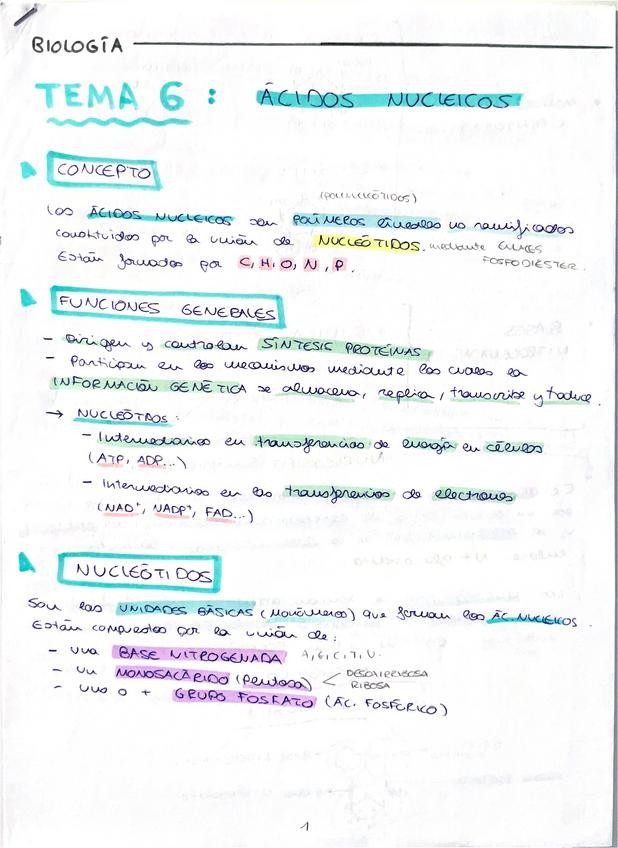 BIOLOGÍA
TEMA 6 : ÁCIDOS NUCLEICOS
CONCEPTO
(POLINUCLEÓTIDOS)
Los ÁCIDOS NUCLEICOS son POLÍMEROS lineales no ramificados
constituidos por la unión de NUCLEÓTIDOS. mediante ENLACES
Están formados por C, H, O, N, P. FOSFODIÉSTER.
FUNCIONES GENERALES
- Dirigen y controlan SÍNTESIS PROTEÍNAS
- Participan en los mecanismos mediante los cuales la
INFORMACIÓN GENÉTICA se almacena, replica, transcribe y traduce.
→ NUCLEÓTIDOS:
- Intermediarios en transferencias de energía en células
(ATP, ADP...)
- Intermediarios en las transferencias de electrones
(NAD⁺, NADP⁺, FAD...)
NUCLEÓTIDOS
Son las UNIDADES BÁSICAS (Monómeros) que forman los ÁC. NUCLEICOS.
Están compuestos por la unión de:
- una BASE NITROGENADA A, G, C, T, U.
- un MONOSACÁRIDO (Pentosa) < DESOXIRRIBOSA
RIBOSA
- uno o + GRUPO FOSFATO (ÁC. FOSFÓRICO)
1